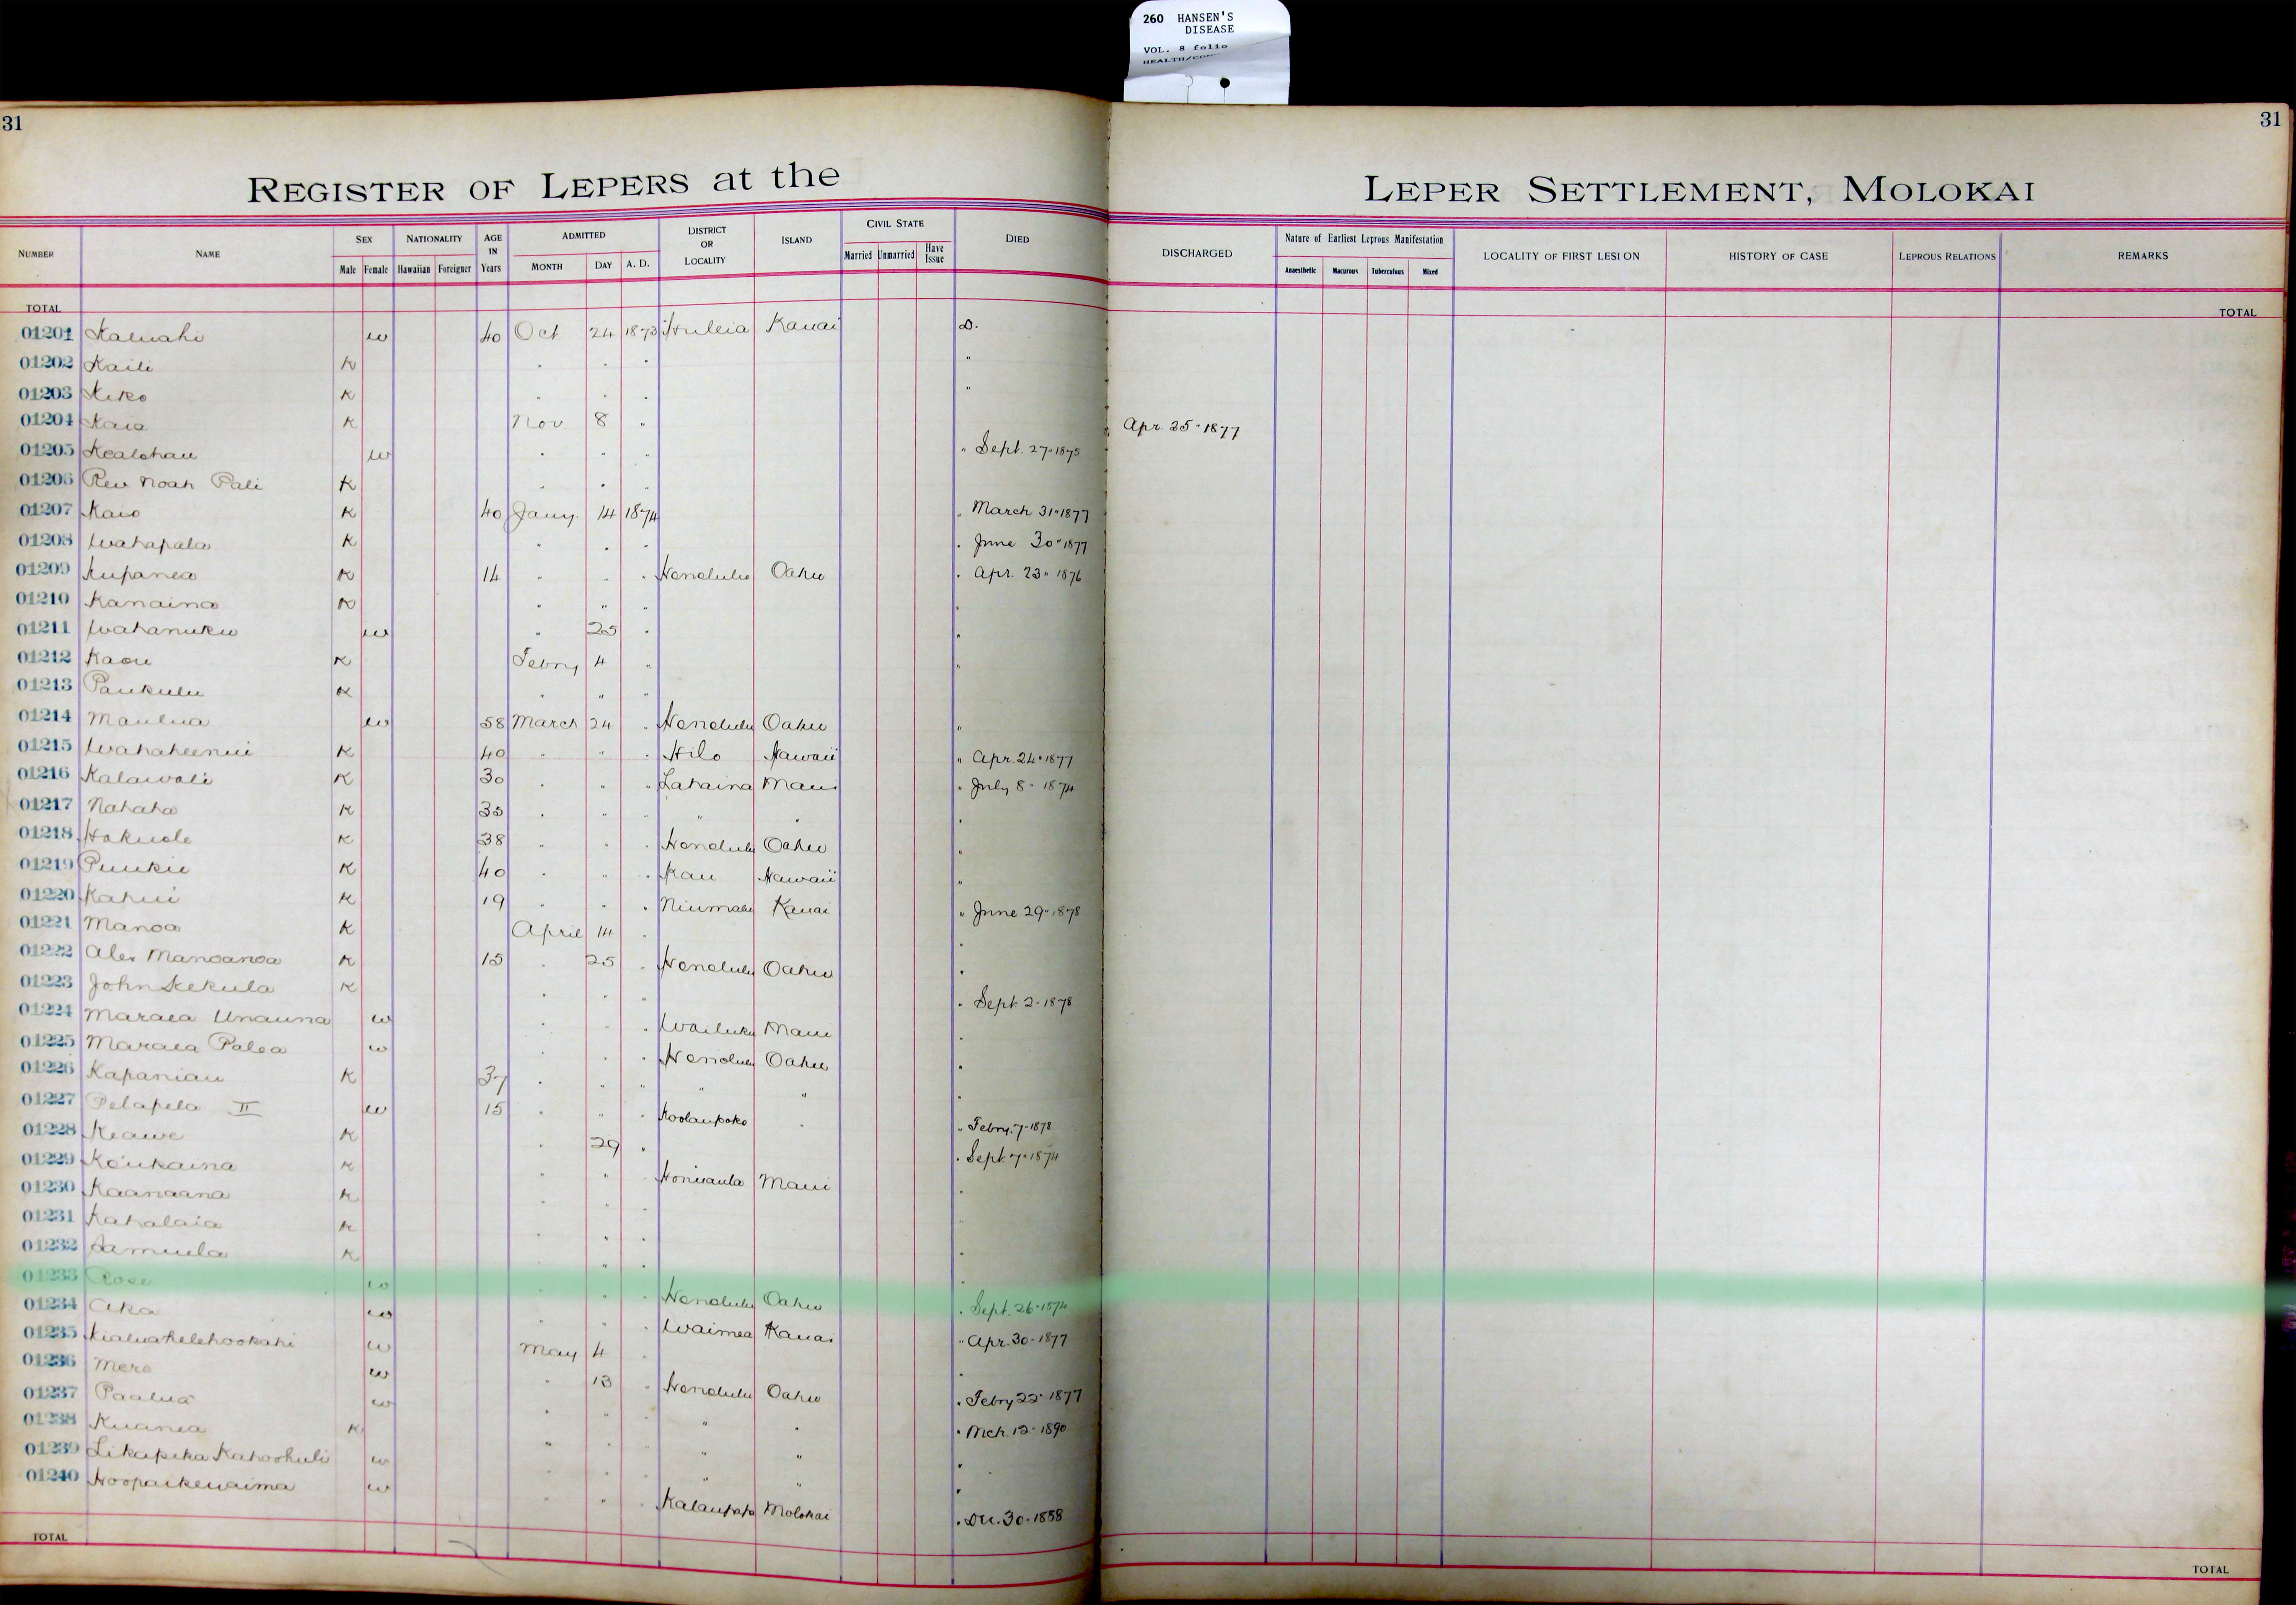 260 HANSEN'S
DISEASE
VOL. 8 folio
31
31
REGISTER OF LEPERS at the
LEPER SETTLEMENT, MOLOKAI
NUMBER NAME SEX Male Female NATIONALITY Hawaiian Foreigner AGE IN Years ADMITTED MONTH DAY A. D. DISTRICT OR LOCALITY ISLAND CIVIL STATE Married Unmarried Have Issue DIED DISCHARGED Nature of Earliest Leprous Manifestation Anaesthetic Macurous Tuberculous Mixed LOCALITY OF FIRST LESION HISTORY OF CASE LEPROUS RELATIONS REMARKS
TOTAL TOTAL
01201 Kaluahi w 40 Oct 24 1873 Huleia Kauai D.
01202 Kaili K " " " "
01203 Keko K " " " "
01204 Kaia K Nov 8 " " Apr. 25" 1877
01205 Kealohau w " " " " Sept. 27" 1875
01206 Rev Noah Pali K " " "
01207 Kaio K 40 Jany. 14 1874 " March 31" 1877
01208 Wahapala K " " " " June 30" 1877
01209 Kupanea K 14 " " " Honolulu Oahu " Apr. 23" 1876
01210 Kanaina K " " " "
01211 Wahanuku w " 25 " "
01212 Kaou K Febry 4 " "
01213 Paukulu K " " "
01214 Maulua w 58 March 24 " Honolulu Oahu "
01215 Wahaheenui K 40 " " " Hilo Hawaii " Apr. 24" 1877
01216 Kalawali K 30 " " " Lahaina Maui " July 8" 1874
01217 Nahaha K 35 " " " " " "
01218 Hokuole K 38 " " " Honolulu Oahu "
01219 Puukii K 40 " " " Kau Hawaii "
01220 Kahui K 19 " " " Niumalu Kauai " June 29" 1878
01221 Manoa K April 14 " "
01222 Alex Manoanoa K 15 " 25 " Honolulu Oahu "
01223 John Kekula K " " " " Sept. 2" 1878
01224 Maraea Unauna w " " " Wailuku Maui "
01225 Maraea Palea w " " " Honolulu Oahu "
01226 Kapaniau K 37 " " " " " "
01227 Pelapela II w 15 " " " Koolaupoko " " Febry. 7" 1878
01228 Keawe K " 29 " " Sept. 7" 1874
01229 Koukaina K " " " Honuaula Maui "
01230 Kaanaana K " " "
01231 Kahalaia K " " " "
01232 Samuela K " " "
01233 Rose w " " " Honolulu Oahu " Sept. 26" 1874
01234 Aka w " " " Waimea Kauai " Apr. 30" 1877
01235 w May 4 " "
01236 Mere w " 13 " Honolulu Oahu " Febry 22" 1877
01237 Paalua w " " " " " " Mch. 12" 1890
01238 Kuanea K " " " " " "
01239 Likapeka Kahoohuli w " " " " " "
01240 Hoopaikewaima w " " " Kalaupapa Molokai " Dec. 30" 1888
TOTAL TOTAL